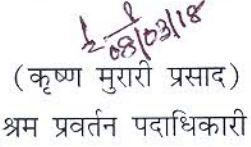 08/03/18
( कृष्ण मुरारी प्रसाद )
श्रम प्रवर्तन पदाधिकारी